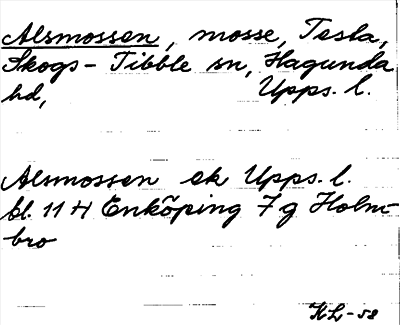 Alsmossen, mosse, Tesla,
Skogs-Tibble sn, Hagunda
hd, Upps. l.
Alsmossen ek Upps. l.
bl. 11 H Enköping 7 g Holm-
bro
KL-58